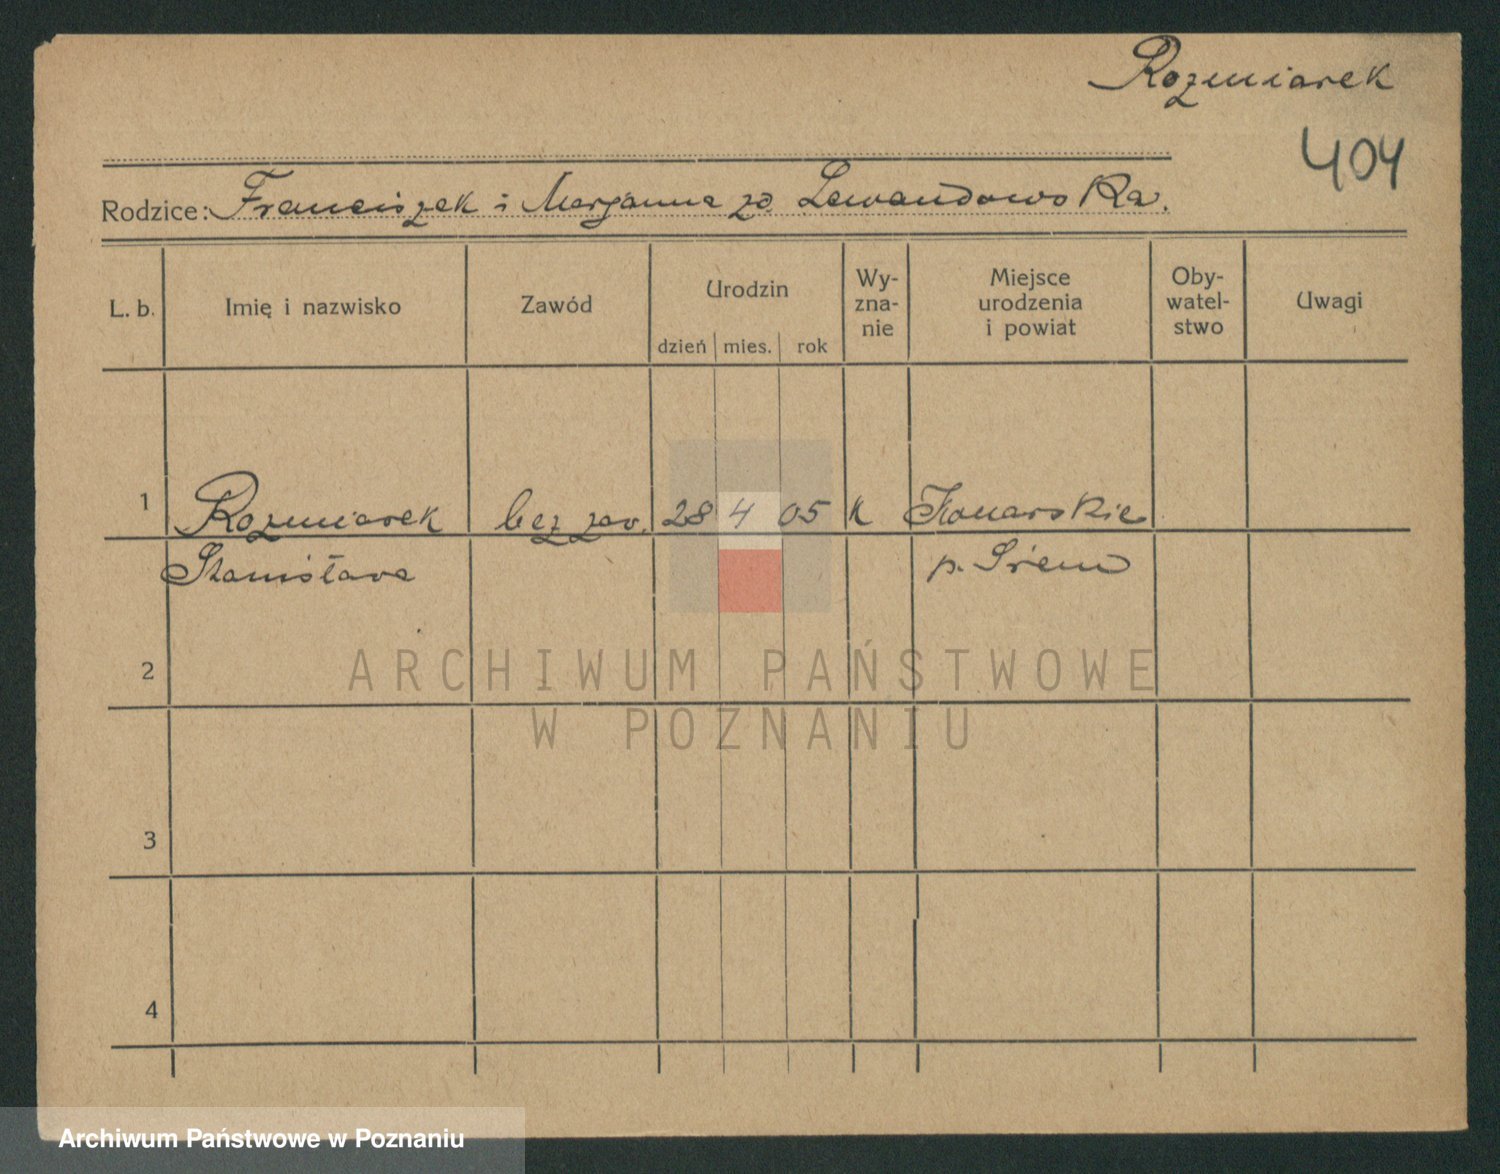 Rozmiarek
404
Rodzice: Franciszek i Marjanna zd. Lewandowska.
L. b. Imię i nazwisko Zawód Urodzin dzień mies. rok Wy-zna-nie Miejsce urodzenia i powiat Oby-watel-stwo Uwagi
1 Rozmiarek bez zaw. 28 4 05 k Konarskie
Stanisława p. Śrem
2
ARCHIWUM PAŃSTWOWE
W POZNANIU
3
4
Archiwum Państwowe w Poznaniu